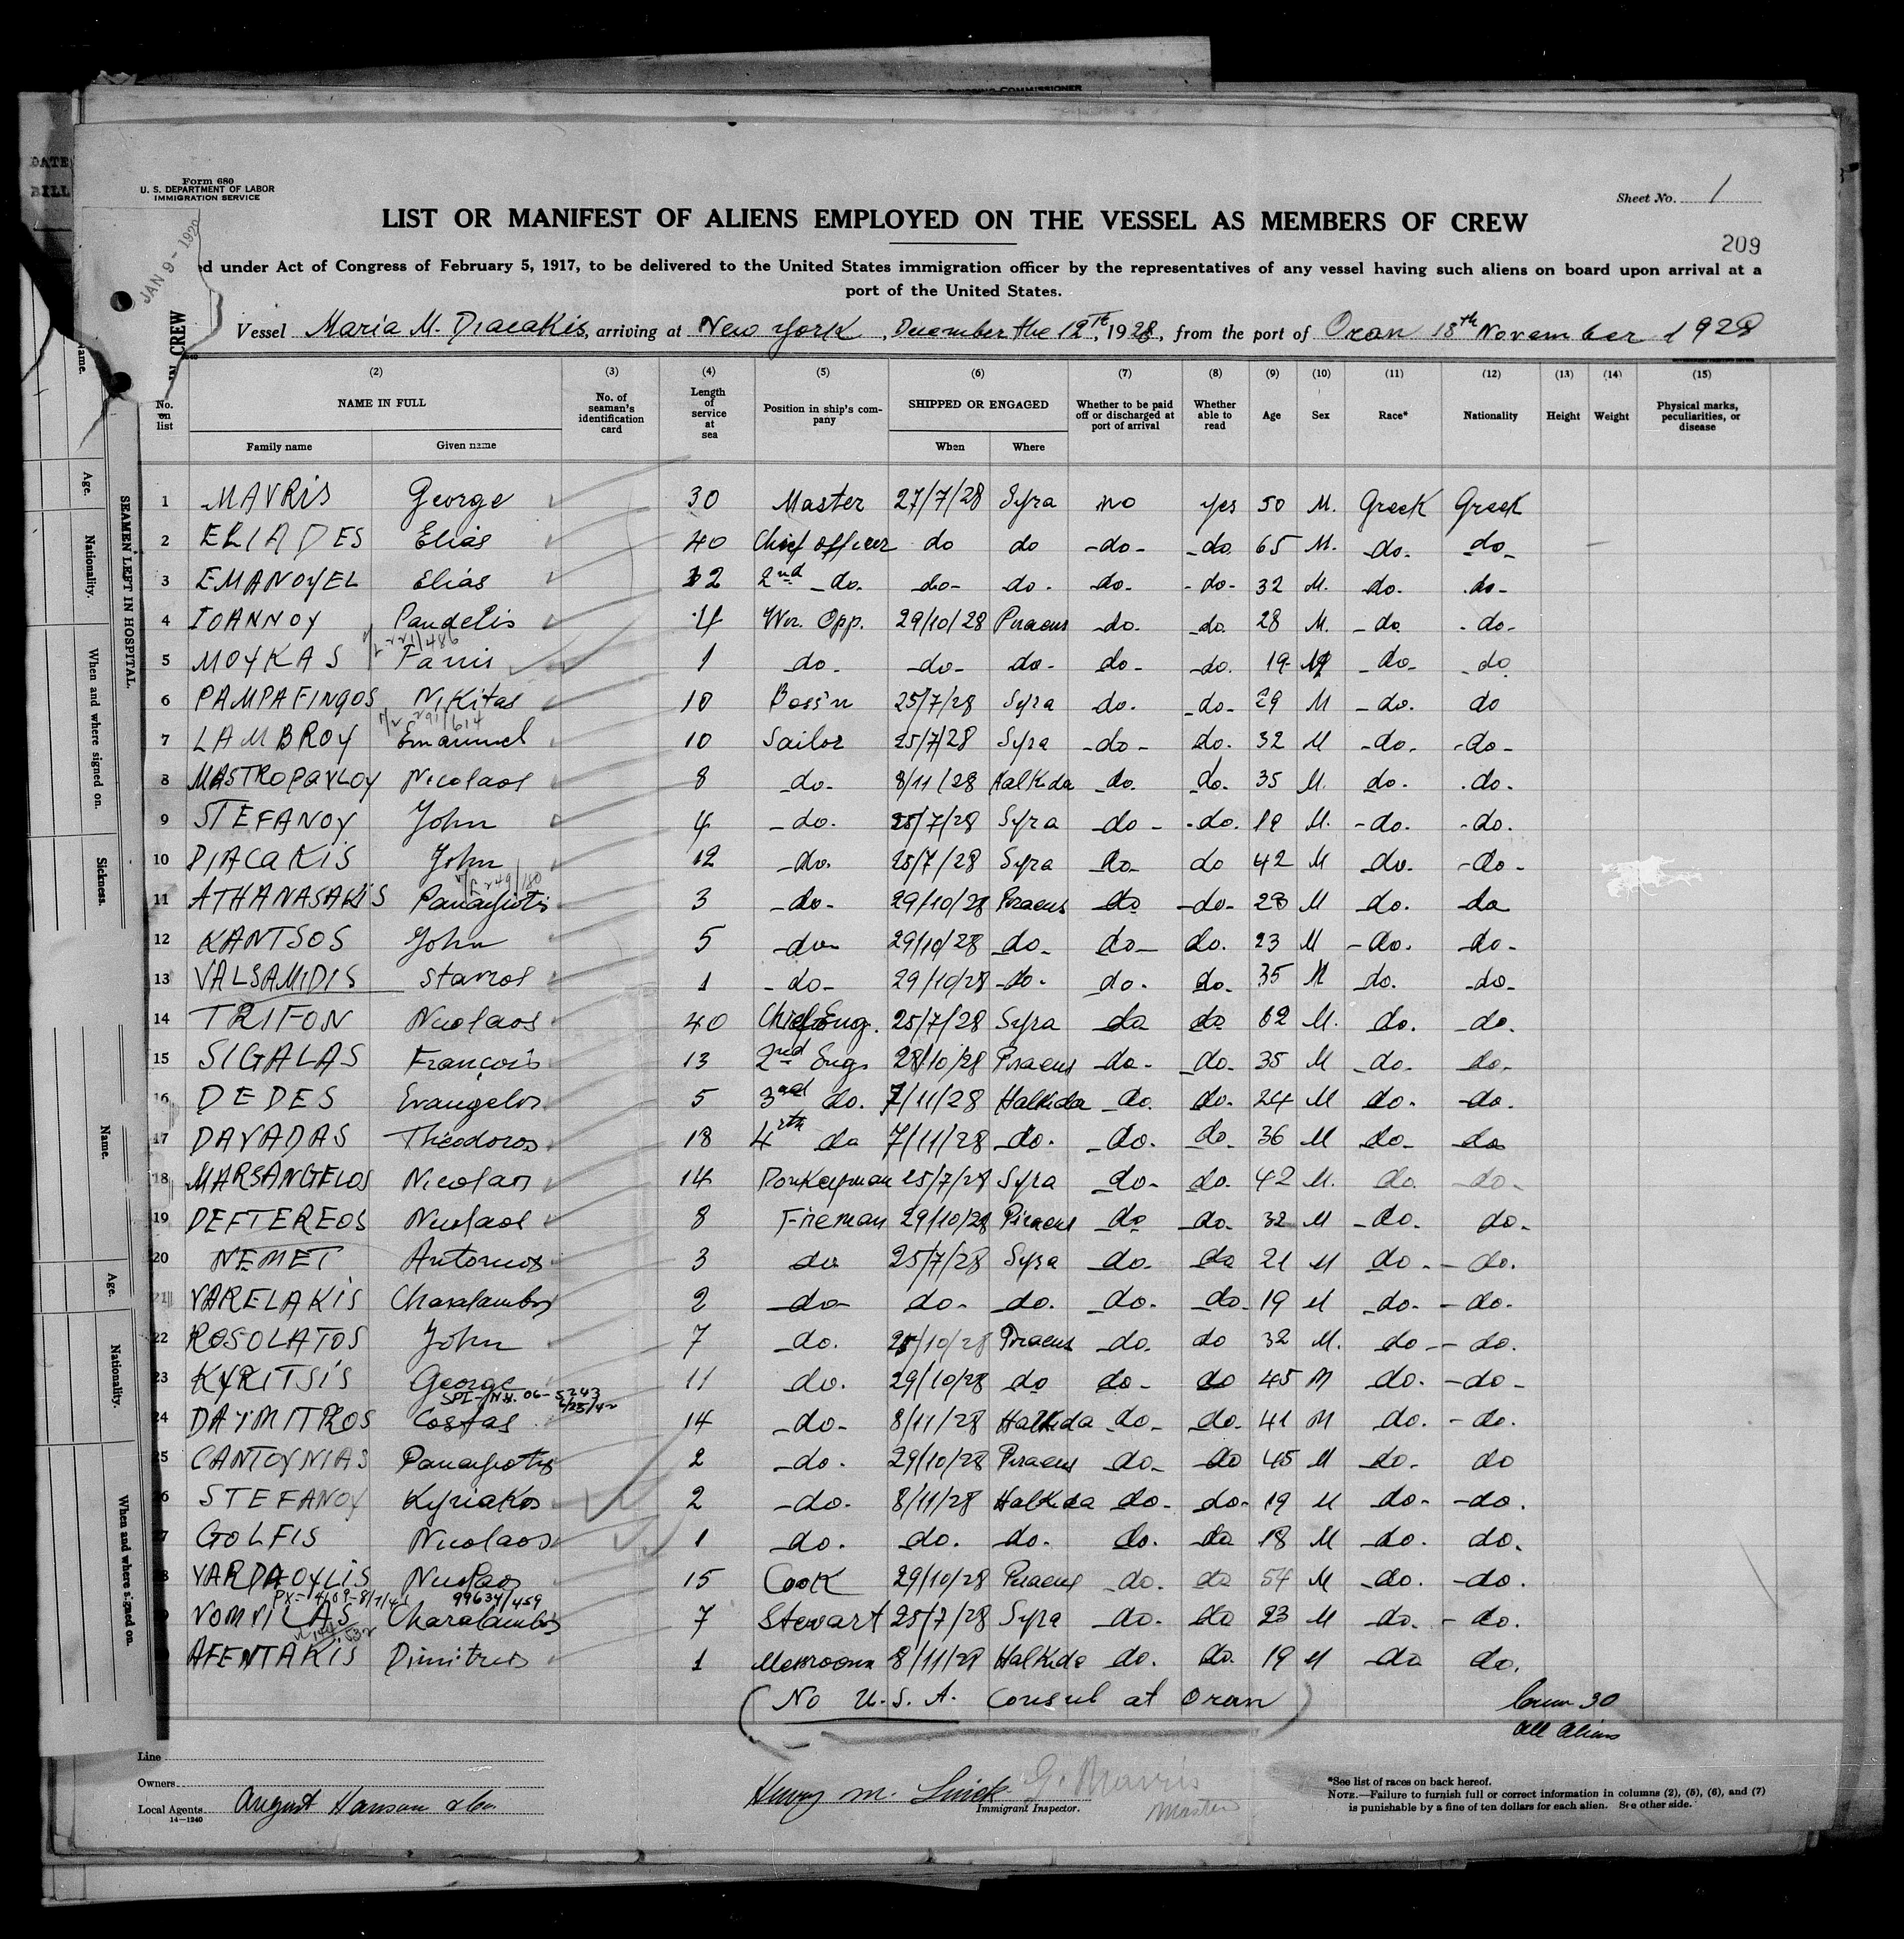 DATE
BILL
Form 680
U. S. DEPARTMENT OF LABOR
IMMIGRATION SERVICE
Sheet No. 1
LIST OR MANIFEST OF ALIENS EMPLOYED ON THE VESSEL AS MEMBERS OF CREW
209
JAN 9 - 192
ed under Act of Congress of February 5, 1917, to be delivered to the United States immigration officer by the representatives of any vessel having such aliens on board upon arrival at a
port of the United States.
Vessel Maria M. Diacakis, arriving at New York, December the 12th, 1928, from the port of Oran 18th November 1928
(2) (3) (4) (5) (6) (7) (8) (9) (10) (11) (12) (13) (14) (15)
No. on list NAME IN FULL Family name Given name No. of seaman's identification card Length of service at sea Position in ship's company SHIPPED OR ENGAGED When Where Whether to be paid off or discharged at port of arrival Whether able to read Age Sex Race* Nationality Height Weight Physical marks, peculiarities, or disease
1 MAVRIS George 30 Master 27/7/28 Syra no yes 50 M. Greek Greek
2 ELIADES Elias 40 Chief officer do do -do- -do. 65 M. -do. do-
3 EMANOYEL Elias 12 2nd do. do- do. do. -do- 32 M. do. do-
4 IOANNOY Pandelis 4 Wir. Opp. 29/10/28 Piraeus -do. -do. 28 M. -do. -do-
5 MOYKAS Fanis 1 do- -do- do- do- -do. 19 M -do- -do
6 PAMPAFINQOS Nikitas 10 Bos'n 25/7/28 Syra do. -do- 29 M -do. do
7 LAMBROY Emanuel 10 Sailor 25/7/28 Syra -do- do. 32 M -do- -do-
8 MASTROPAVLOY Nicolaos 8 -do- 8/11/28 Halkida -do. do. 35 M. do. -do.
9 STEFANOY John 4 -do. 25/7/28 Syra -do- -do. 19 M. -do. -do.
10 DIACAKIS John 12 -do. 25/7/28 Syra do- do 42 M do. -do-
11 ATHANASAKIS Panayiotis 3 -do- 29/10/28 Piraeus do -do- 23 M do. do
12 KANTSOS John 5 -do- 29/10/28 do- do- do. 23 M -do. -do-
13 VALSAMIDIS Stavros 1 -do- 29/10/28 -do- do. do. 35 M do. -do-
14 TRIFON Nicolaos 40 Chief Eng. 25/7/28 Syra do do 62 M. do. -do.
15 SIGALAS François 13 2nd Eng. 28/10/28 Piraeus -do- -do. 35 M -do. do-
16 DEDES Evangelos 5 3rd do. 7/11/28 Halkida -do. do. 24 M do. -do.
17 DAVADAS Theodoros 18 4rth do 7/11/28 -do. -do. do- 36 M do- do
18 MARSANGELOS Nicolaos 14 Donkeyman 25/7/28 Syra -do- do. 42 M. do. -do-
19 DEFTEREOS Nicolaos 8 Fireman 29/10/28 Piraeus do -do. 32 M -do. do-
20 NEMET Antonios 3 do 25/7/28 Syra do- do 21 M do. -do.
21 VARELAKIS Charalambos 2 -do- do- do. do. do- 19 M do. -do.
22 ROSOLATOS John 7 do. 25/10/28 Piraeus do. do 32 M. do -do.
23 KYRITSIS George 11 do. 29/10/28 do do- do 45 M do. -do-
24 DAYMITROS Costas 14 -do- 8/11/28 Halkida do- do. 41 M do. -do.
25 CANTOYNIAS Panayiotis 2 -do. 29/10/28 Piraeus do- do 45 M do- do
26 STEFANOY Kyriakos 2 -do. 8/11/28 Halkida do- do- 19 M do- -do.
27 GOLFIS Nicolaos 1 do. do. do. do. do 18 M do. do.
28 VARDAOYLIS Nicolaos 15 Cook 29/10/28 Piraeus do. do 54 M do. -do.
Charalambos 7 Stewart 25/7/28 Syra do. do 23 M do. -do.
99634/459
AFENTAKIS Dimitrios 1 Messroom 8/11/28 Halkida do. do. 19 M do do.
(No U.S.A. Consul at Oran)
Crew 30
all aliens
Line
Owners
Local Agents August Hansen & Co.
14—1240
Henry M.
Immigrant Inspector.
G. Mavris
Master
*See list of races on back hereof.
NOTE.—Failure to furnish full or correct information in columns (2), (5), (6), and (7)
is punishable by a fine of ten dollars for each alien. See other side.
SEAMEN LEFT IN HOSPITAL.
Name.
Age.
Nationality.
When and where signed on.
Sickness.
Name.
Age.
Nationality.
When and where signed on.